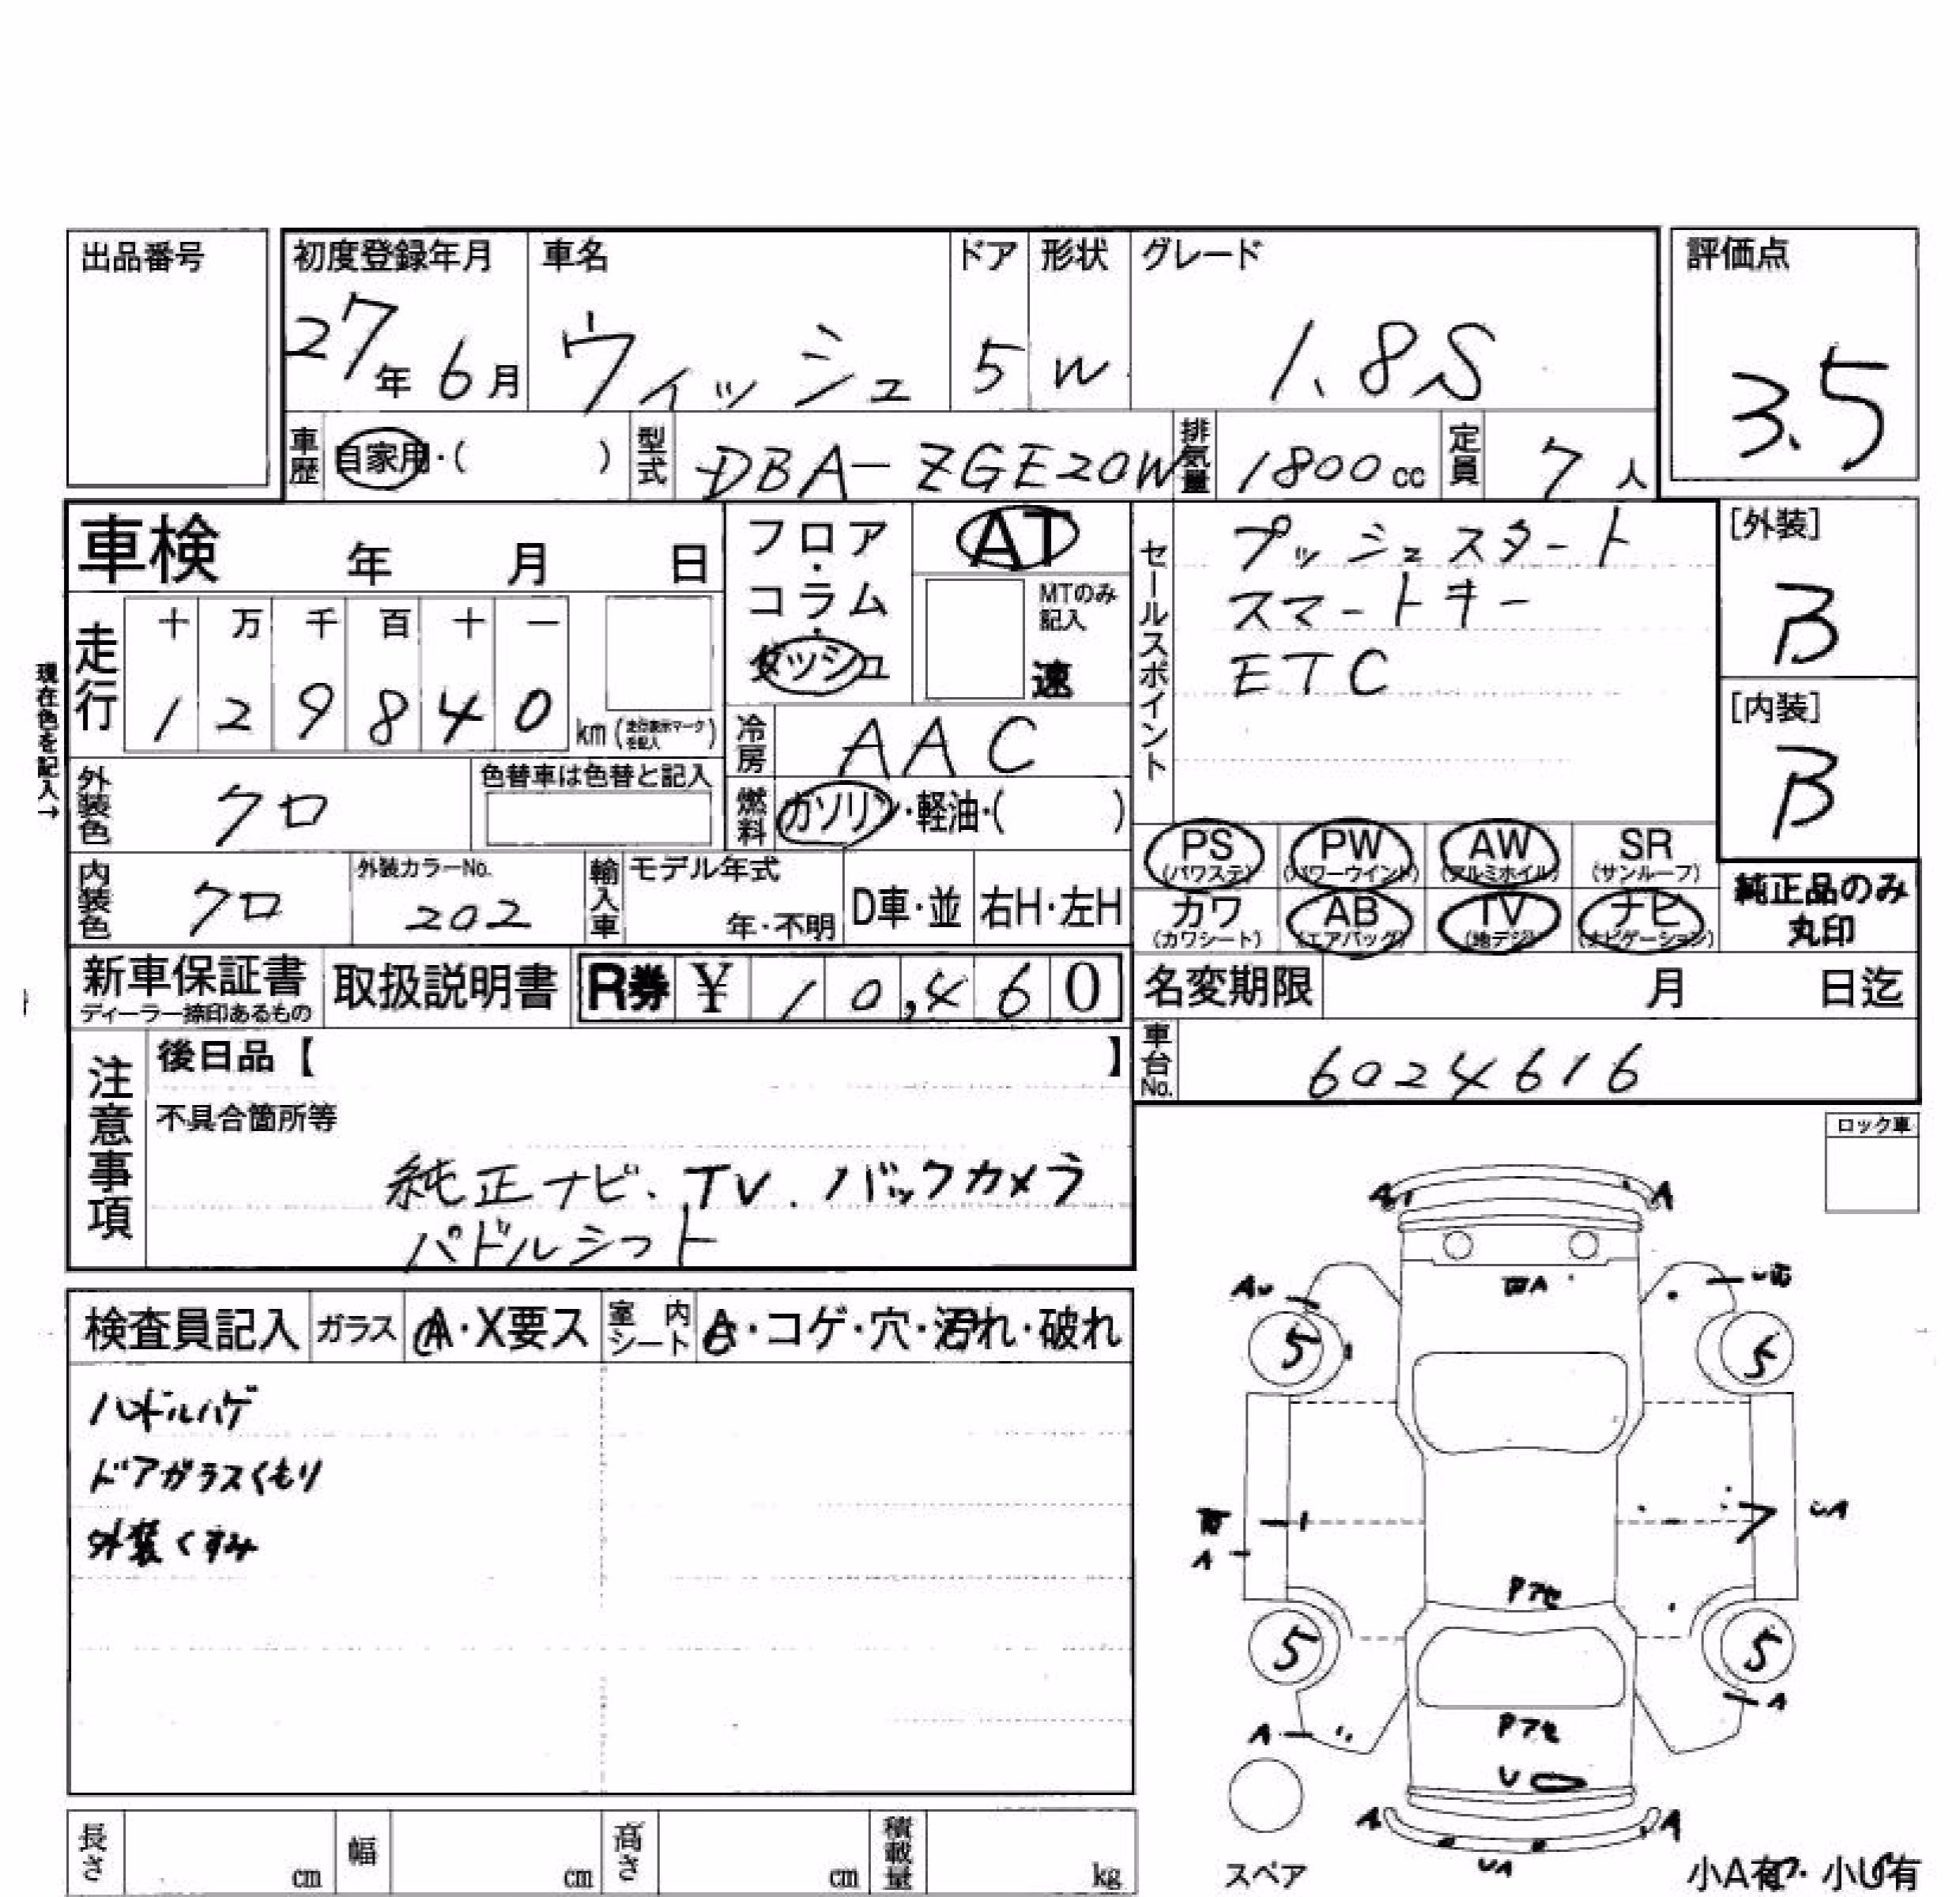 出品番号
初度登録年月 車名 ドア 形状 グレード 評価点
27年6月 ウィッシュ 5 W 1.8S 3.5
車歴 自家用・( ) 型式 DBA-ZGE20W 排気量 1800cc 定員 7人
車検 年 月 日
フロア・コラム・ダッシュ
AT
MTのみ記入
速
セールスポイント
プッシュスタート
スマートキー
ETC
[外装]
B
[内装]
B
現在色を記入→
走行 十 万 千 百 十 一
1 2 9 8 4 0 km (走行表示マークを記入)
冷房 AAC
外装色 クロ 色替車は色替と記入
燃料 ガソリン・軽油・( )
PS (パワステ) PW (パワーウインド) AW (アルミホイル) SR (サンルーフ)
カワ (カワシート) AB (エアバッグ) TV (地デジ) ナビ (ナビゲーション)
純正品のみ
丸印
内装色 クロ 外装カラーNo. 202 輸入車 モデル年式 年・不明 D車・並 右H・左H
新車保証書 ディーラー捺印あるもの 取扱説明書 R券 ¥ 10,460
名変期限 月 日迄
車台No. 6024616
注意事項
後日品【 】
不具合箇所等
純正ナビ、TV、バックカメラ
パドルシフト
ロック車
検査員記入 ガラス A・X要ス 室内シート A・コゲ・穴・汚れ・破れ
ハンドルハゲ
ドアガラスくもり
外装くすみ
A A
AU
5 5
UA
A
Pアセ
5 5
A A
Pアセ
U
A A
UA
スペア
小A有・小U有
長さ cm 幅 cm 高さ cm 積載量 kg